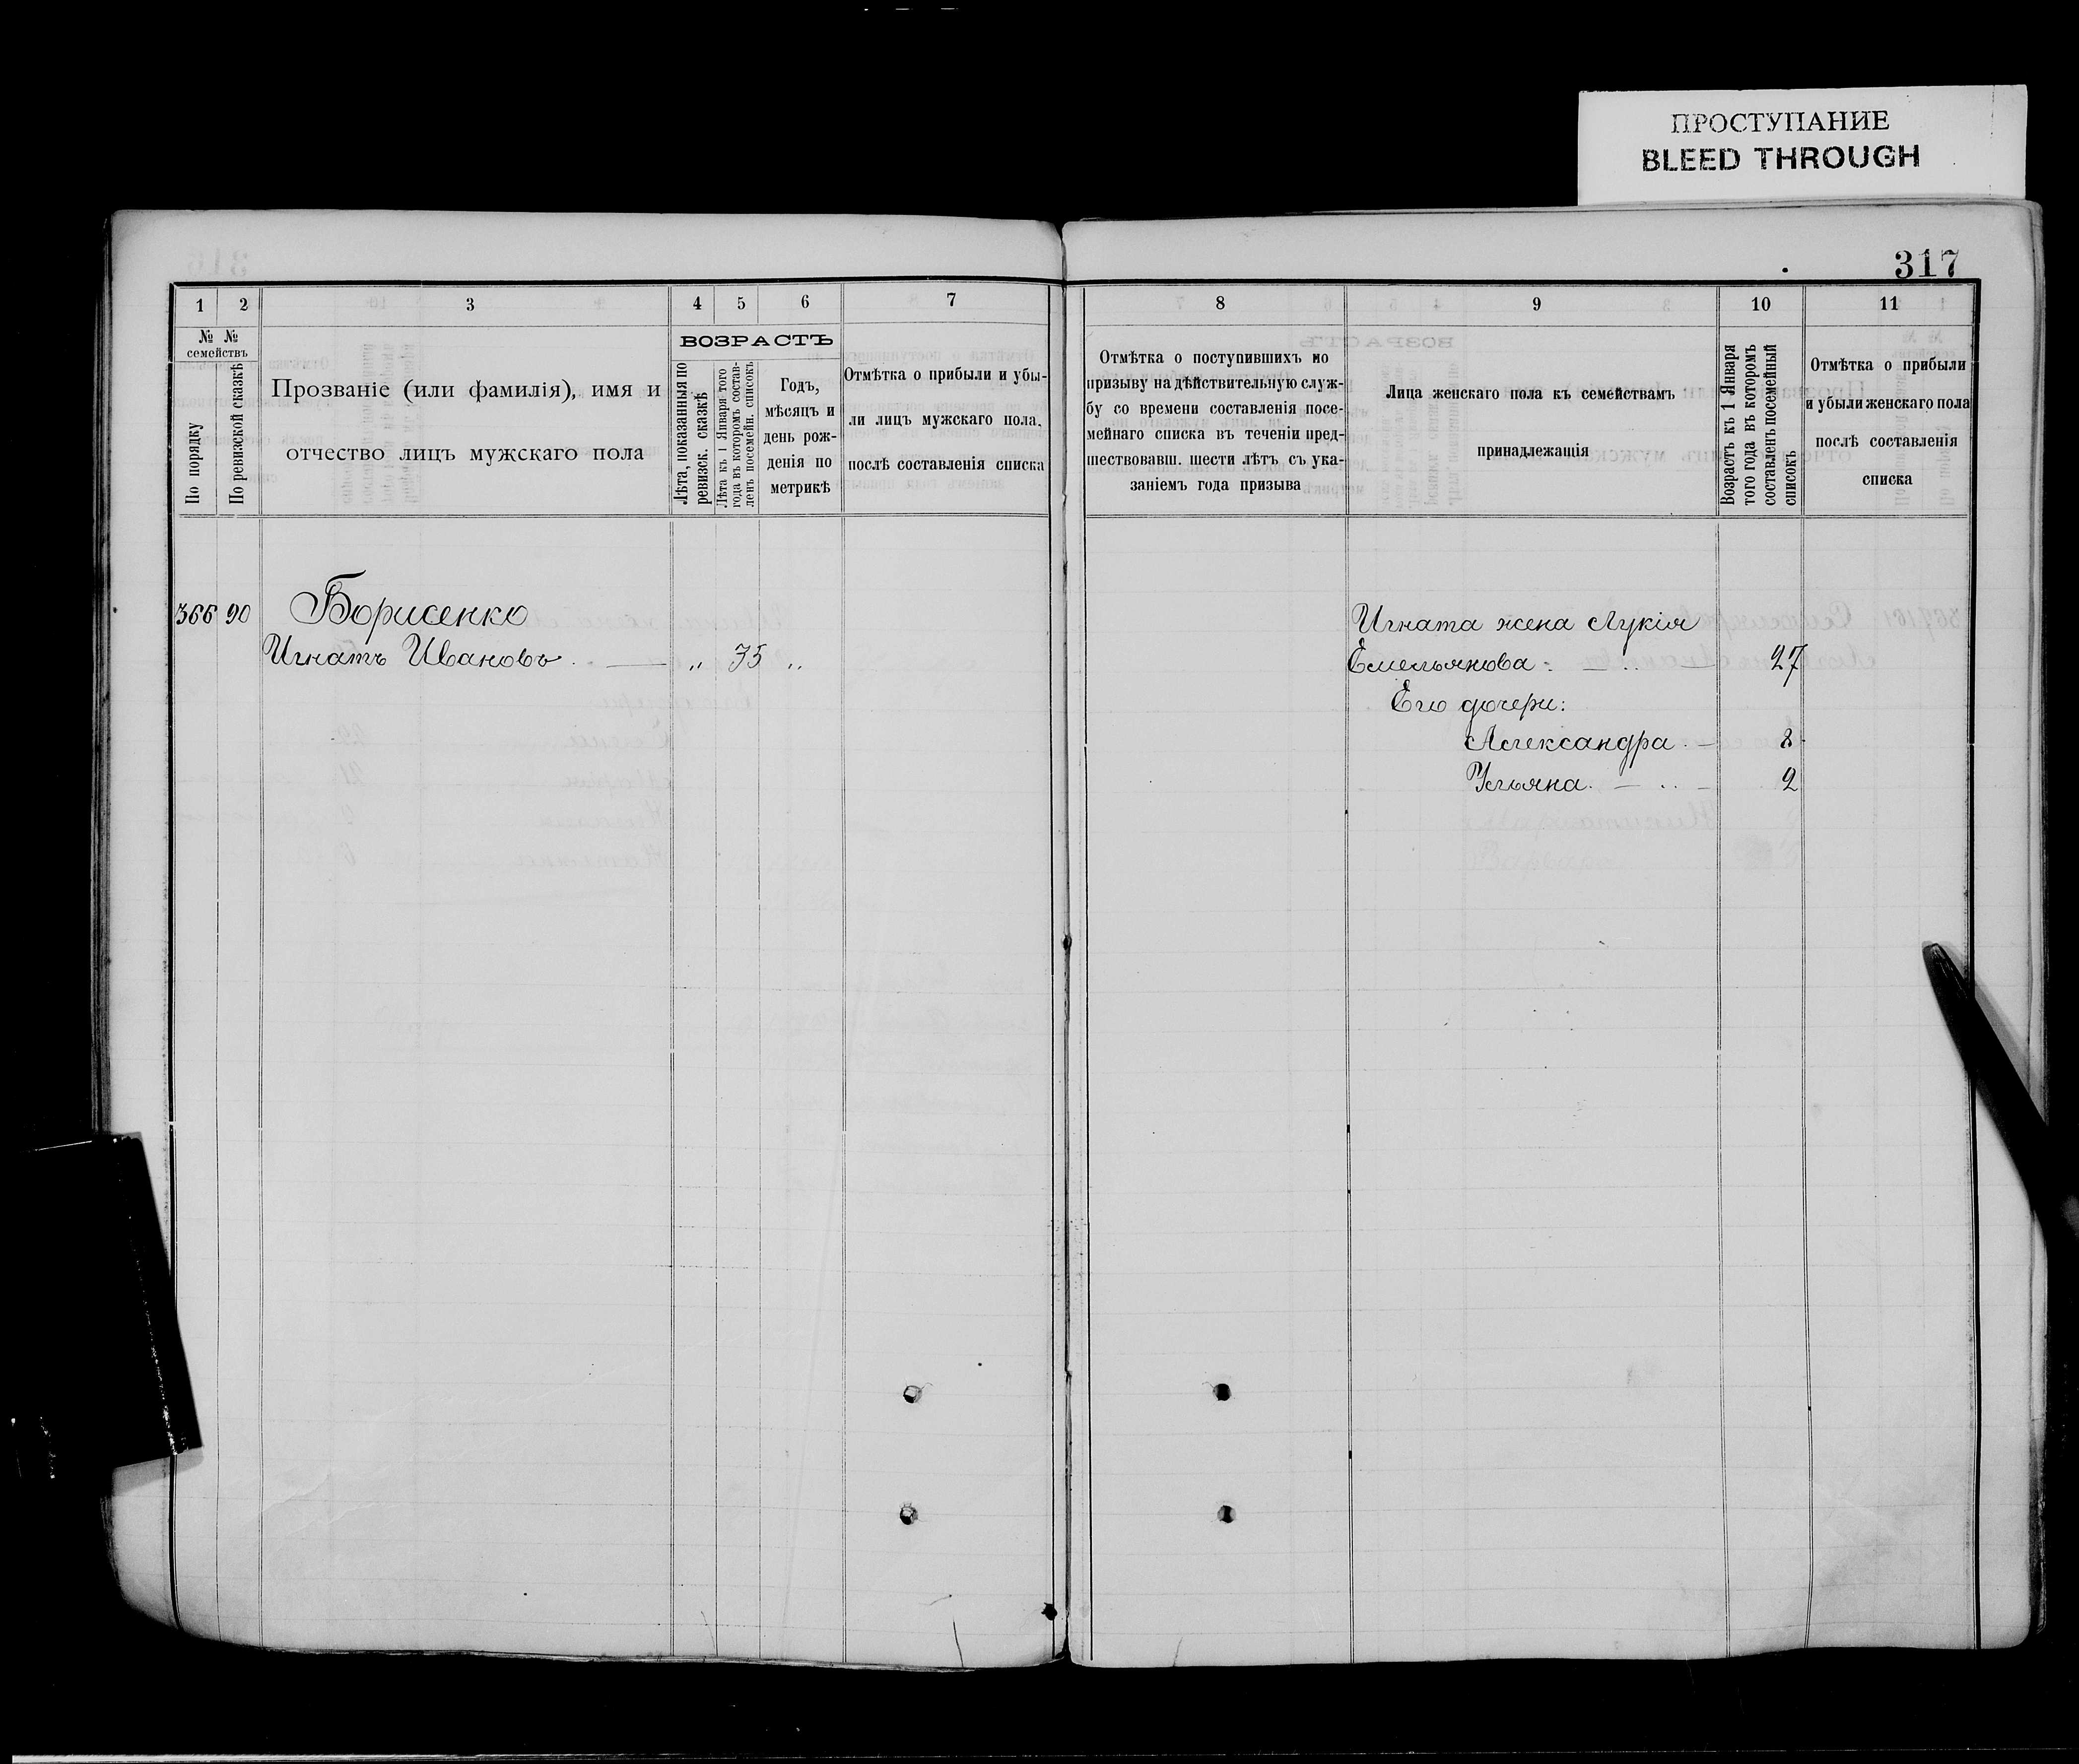 ПРОСТУПАНИЕ
BLEED THROUGH
317
1 2 3 4 5 6 7
№ № семействъ
По порядку
По ревизской сказкѣ
Прозваніе (или фамилія), имя и
отчество лицъ мужскаго пола
ВОЗРАСТЪ
Лѣта, показанныя по
ревизск. сказкѣ
Лѣта къ 1 Января того
года въ которомъ состав-
ленъ посемейн. списокъ
Годъ,
мѣсяцъ и
день рож-
денія по
метрикѣ
Отмѣтка о прибыли и убы-
ли лицъ мужскаго пола,
послѣ составленія списка
8 9 10 11
Отмѣтка о поступившихъ по
призыву на дѣйствительную служ-
бу со времени составленія посе-
мейнаго списка въ теченіи пред-
шествовавш. шести лѣтъ съ ука-
заніемъ года призыва
Лица женскаго пола къ семействамъ
принадлежащія
Возрастъ къ 1 Января
того года въ которомъ
составленъ посемейный
списокъ
Отмѣтка о прибыли
и убыли женскаго пола
послѣ составленія
списка
366 90 Борисенко
Игнатъ Ивановъ. — „ 35 „
Игната жена Лукія
Емельянова 27
Его дочери:
Александра 8
Ульяна 2